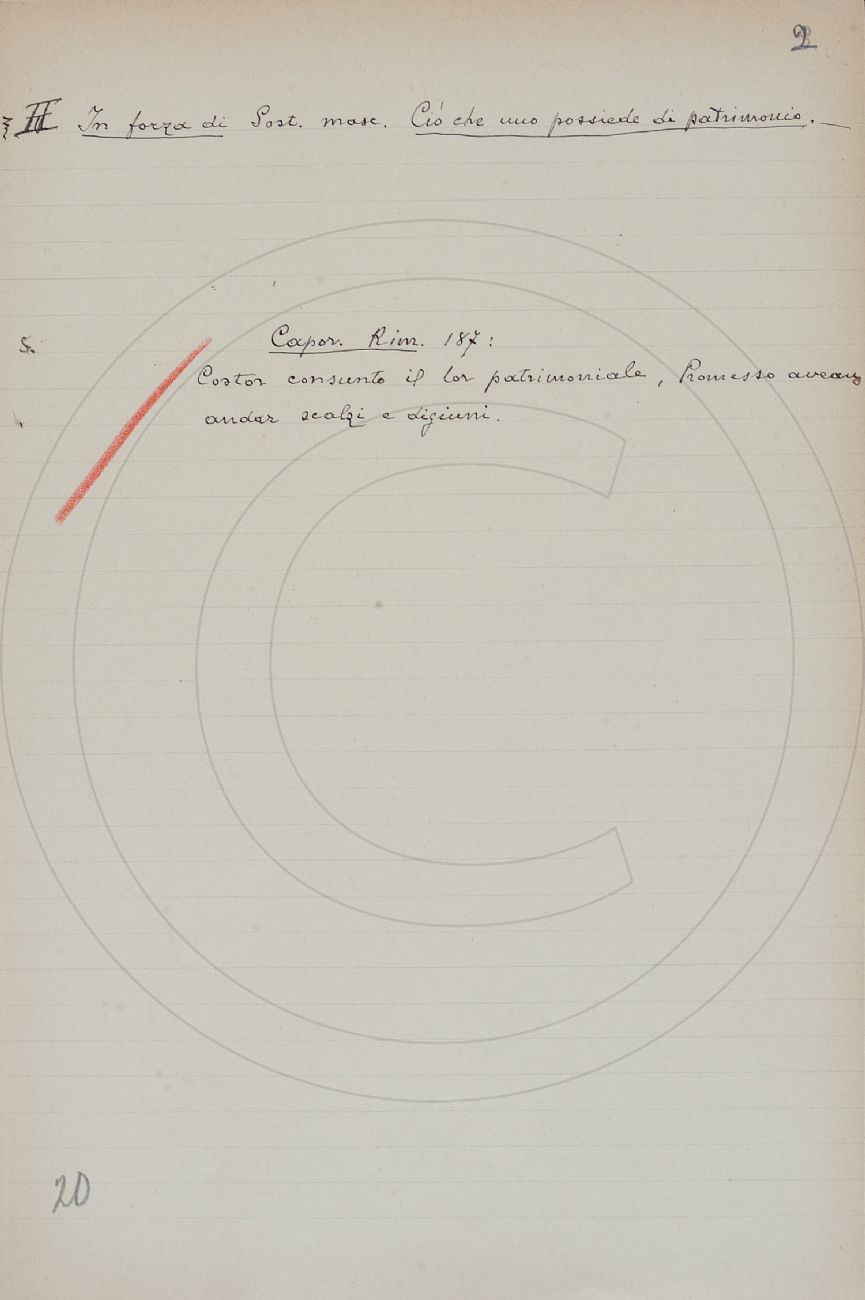 2
§ II In forza di Sost. masc. Ciò che uno possiede di patrimonio. —
S. Capor. Rim. 187:
Costor consunto il lor patrimoniale, Promesso avean
andar scalzi e digiuni.
20